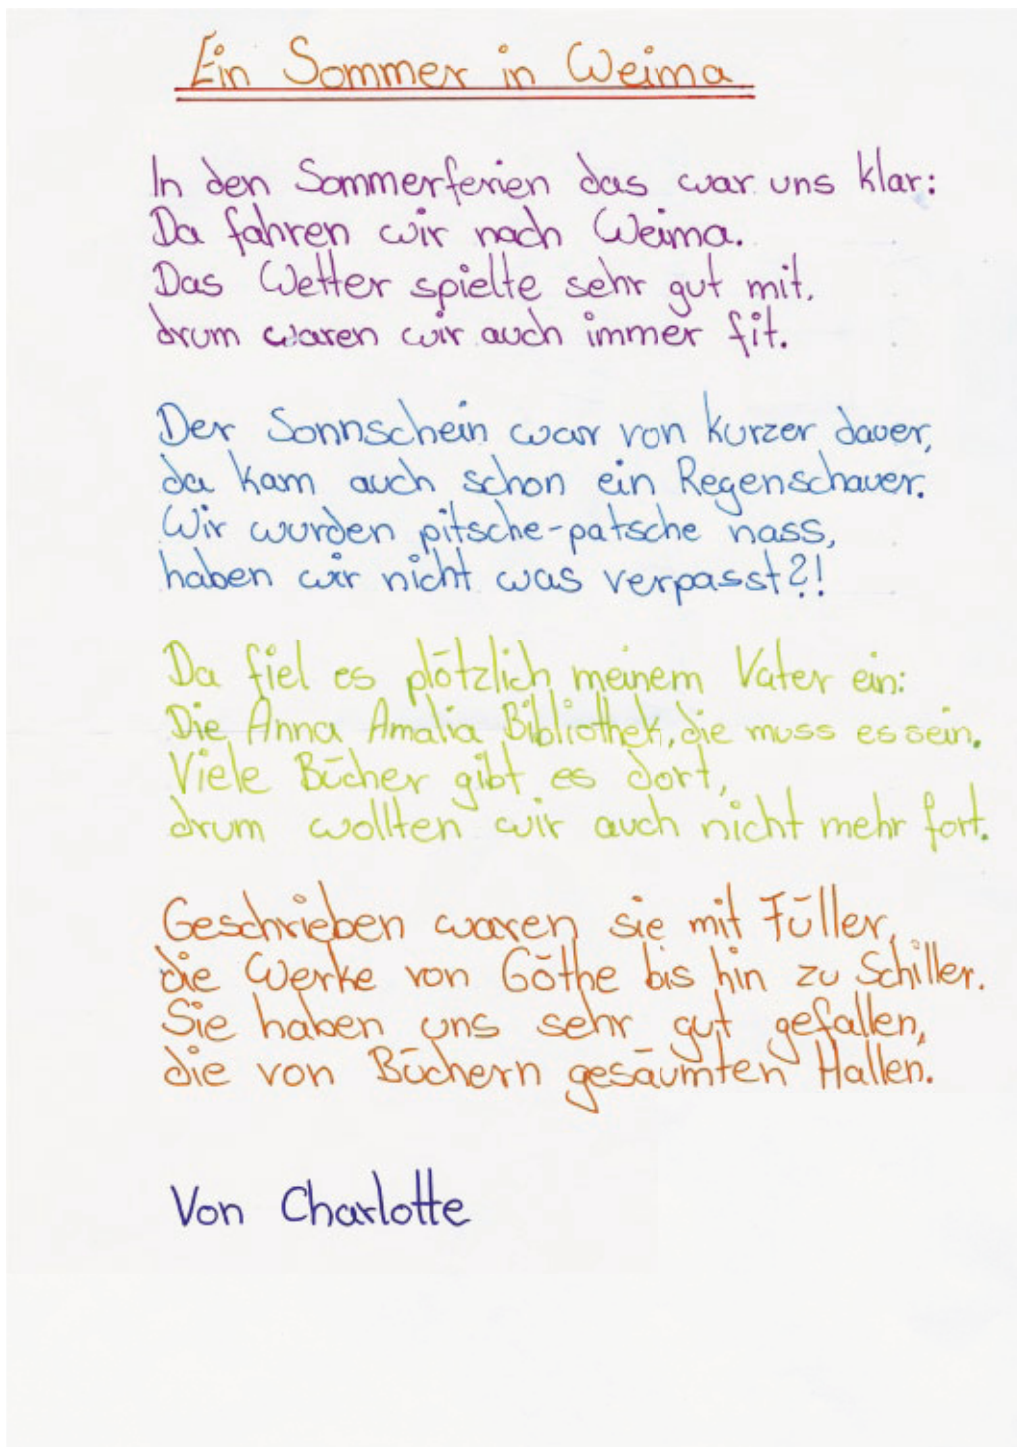 Ein Sommer in Weima
In den Sommerferien das war uns klar:
Da fahren wir nach Weima.
Das Wetter spielte sehr gut mit,
drum waren wir auch immer fit.
Der Sonnschein war von kurzer dauer,
da kam auch schon ein Regenschauer.
Wir wurden pitsche-patsche nass,
haben wir nicht was verpasst?!
Da fiel es plötzlich meinem Vater ein:
Die Anna Amalia Bibliothek, die muss es sein.
Viele Bücher gibt es dort,
drum wollten wir auch nicht mehr fort.
Geschrieben waren sie mit Füller,
die Werke von Göthe bis hin zu Schiller.
Sie haben uns sehr gut gefallen,
die von Büchern gesäumten Hallen.
Von Charlotte